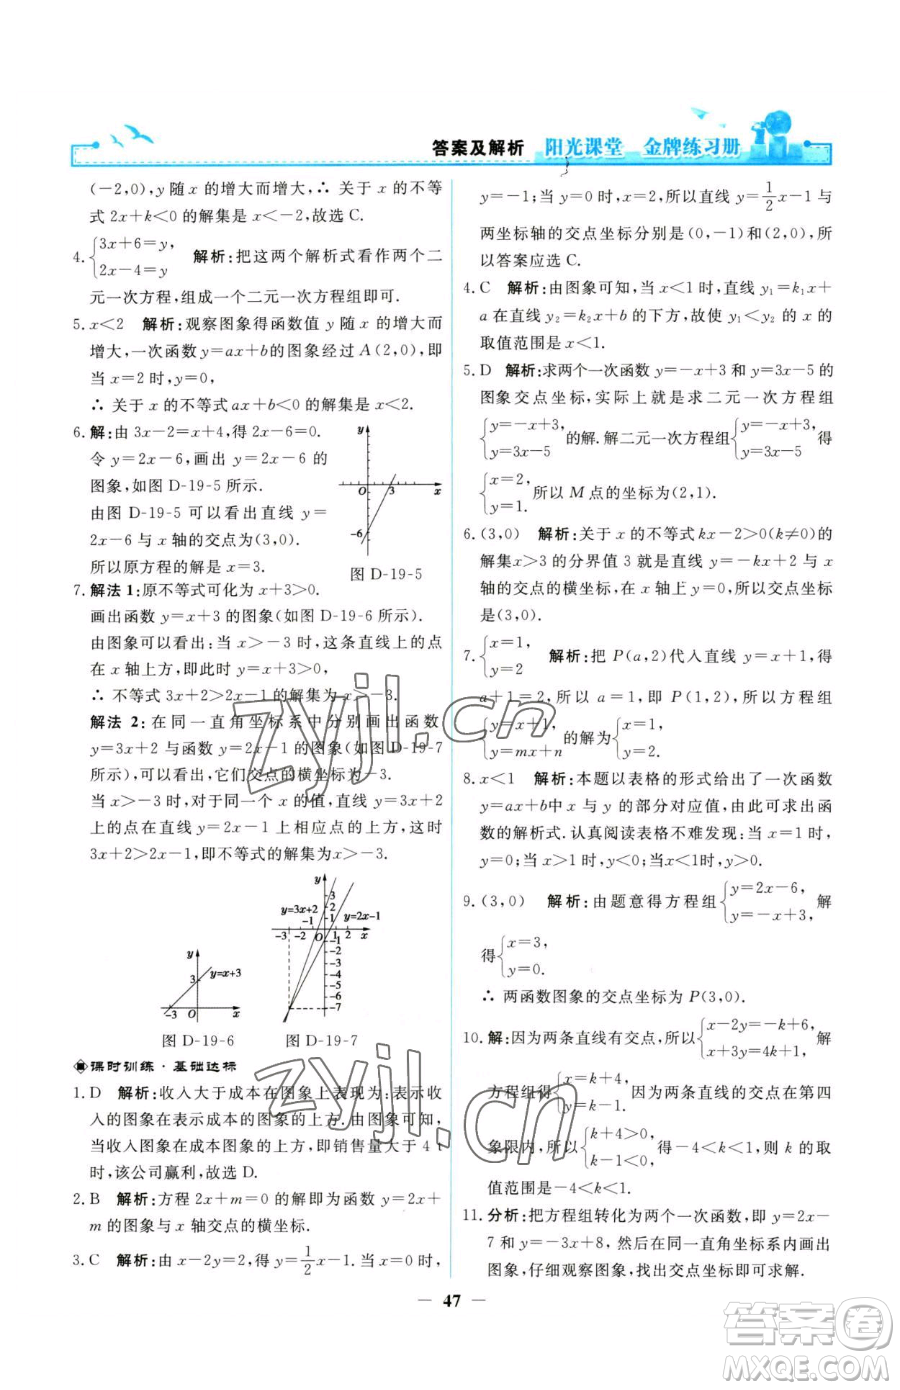 答案及解析 阳光课堂 金牌练习册
(-2,0),y 随 x 的增大而增大,∴ 关于 x 的不等
式 2x+k<0 的解集是 x<-2,故选 C.
4. {3x+6=y, 2x-4=y 解析:把这两个解析式看作两个二
元一次方程,组成一个二元一次方程组即可.
5. x<2 解析:观察图象得函数值 y 随 x 的增大而
增大,一次函数 y=ax+b的图象经过 A(2,0),即
当 x=2 时,y=0,
∴ 关于 x 的不等式 ax+b<0 的解集是 x<2.
6. 解:由 3x-2=x+4,得 2x-6=0.
令 y=2x-6,画出 y=2x-6 的
图象,如图 D-19-5 所示.
由图 D-19-5 可以看出直线 y=
2x-6 与 x 轴的交点为(3,0).
所以原方程的解是 x=3.
y
O 3 x
-6
图 D-19-5
7. 解法 1:原不等式可化为 x+3>0.
画出函数 y=x+3 的图象(如图 D-19-6 所示).
由图象可以看出:当 x>-3 时,这条直线上的点
在 x 轴上方,即此时 x+3>0,
∴ 不等式 3x+2>2x-1 的解集为 x>-3.
解法 2:在同一直角坐标系中分别画出函数
y=3x+2 与函数 y=2x-1 的图象(如图 D-19-7
所示),可以看出,它们交点的横坐标为-3.
当 x>-3 时,对于同一个 x 的值,直线 y=3x+2
上的点在直线 y=2x-1 上相应点的上方,这时
3x+2>2x-1,即不等式的解集为x>-3.
y
3 y=x+3
-3 O x
图 D-19-6
y
3
y=3x+2 2 y=2x-1
-1 1
-3 -2 O 1 2 x
-1
-2
-3
-4
-5
-6
-7
图 D-19-7
课时训练·基础达标
1. D 解析:收入大于成本在图象上表现为:表示收
入的图象在表示成本的图象的上方.由图象可知,
当收入图象在成本图象的上方,即销售量大于 4 t
时,该公司赢利,故选 D.
2. B 解析:方程 2x+m=0 的解即为函数 y=2x+
m 的图象与 x 轴交点的横坐标.
3. C 解析:由 x-2y=2,得 y=1/2x-1.当 x=0 时,
y=-1;当 y=0时,x=2,所以直线 y=1/2x-1 与
两坐标轴的交点坐标分别是(0,-1)和(2,0),所
以答案应选 C.
4. C 解析:由图象可知,当 x<1 时,直线 y₁=k₁x+
a 在直线 y₂=k₂x+b 的下方,故使 y₁<y₂ 的 x 的
取值范围是 x<1.
5. D 解析:求两个一次函数 y=-x+3 和 y=3x-5 的
图象交点坐标,实际上就是求二元一次方程组
{y=-x+3, y=3x-5 的解.解二元一次方程组{y=-x+3, y=3x-5 得
{x=2, y=1. 所以 M 点的坐标为(2,1).
6. (3,0) 解析:关于 x 的不等式 kx-2>0(k≠0)的
解集x>3 的分界值 3 就是直线 y=-kx+2 与 x
轴的交点的横坐标,在 x 轴上 y=0,所以交点坐标
是(3,0).
7. {x=1, y=2 解析:把 P(a,2)代入直线 y=x+1,得
a+1=2,所以 a=1,即 P(1,2),所以方程组
{y=x+1, y=mx+n 的解为{x=1, y=2.
8. x<1 解析:本题以表格的形式给出了一次函数
y=ax+b中 x 与 y 的部分对应值,由此可求出函
数的解析式.认真阅读表格不难发现:当 x=1 时,
y=0;当 x>1 时,y<0;当 x<1 时,y>0.
9. (3,0) 解析:由题意得方程组{y=2x-6, y=-x+3, 解
得{x=3, y=0.
∴ 两函数图象的交点坐标为 P(3,0).
10. 解:因为两条直线有交点,所以{x-2y=-k+6, x+3y=4k+1.解
方程组得{x=k+4, y=k-1. 因为两条直线的交点在第四
象限内,所以{k+4>0, k-1<0, 得-4<k<1,则 k 的取
值范围是-4<k<1.
11. 分析:把方程组转化为两个一次函数,即 y=2x-
7 和 y=-3x+8,然后在同一直角坐标系内画出
图象,仔细观察图象,找出交点坐标即可求解.
— 47 —
zyjl.cn
zyjl.cn
答案圈
MXQE.COM